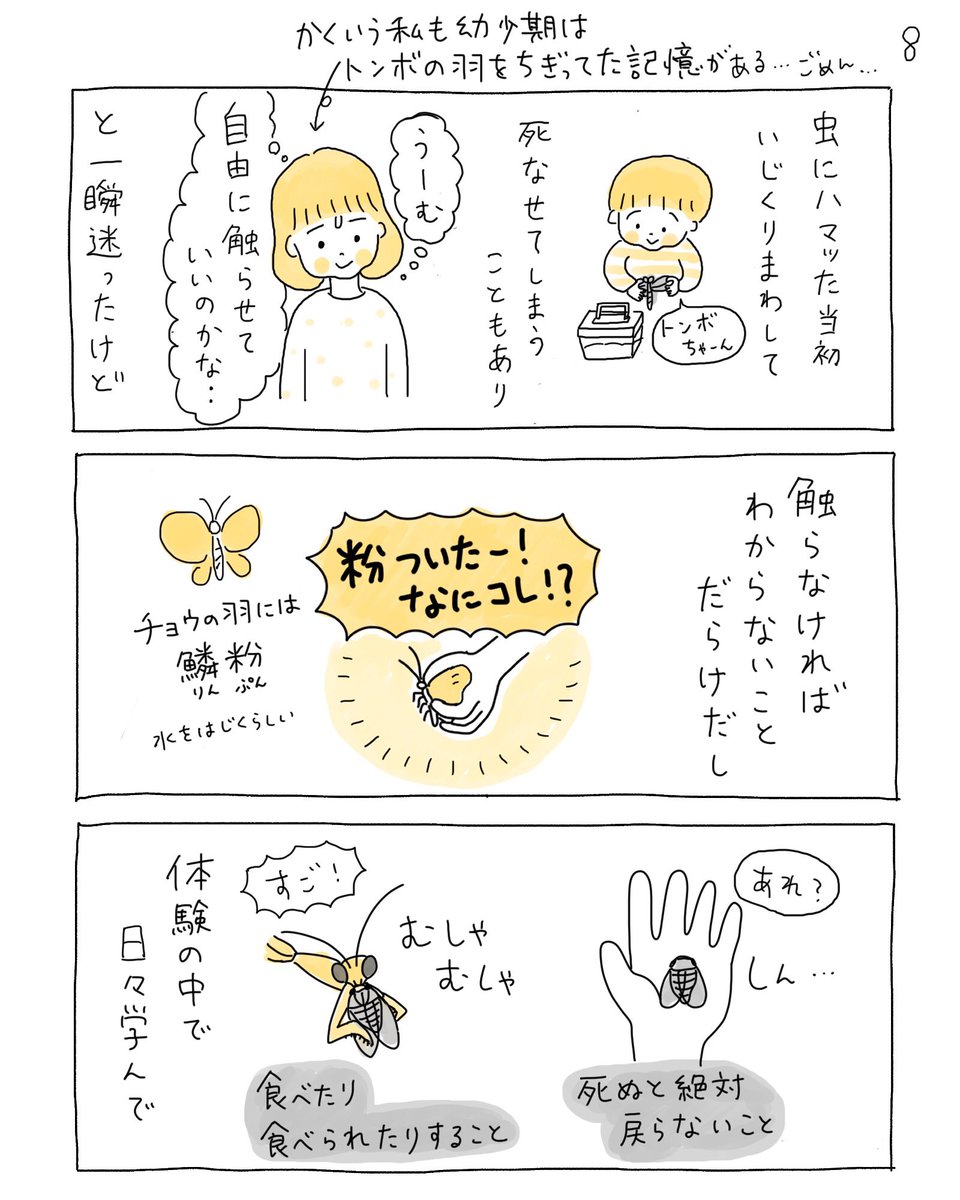 8
かくいう私も幼少期は
トンボの羽をちぎってた記憶がある…ごめん…
虫にハマッた当初
いじくりまわして
トンボ
ちゃーん
死なせてしまう
こともあり
うーむ
自由に触らせて
いいのかな…
と一瞬迷ったけど
触らなければ
わからないこと
だらけだし
粉ついたー!
なにコレ!?
チョウの羽には
鱗粉
りんぷん
水をはじくらしい
あれ?
しん…
死ぬと絶対
戻らないこと
すご!
むしゃ
むしゃ
食べたり
食べられたりすること
体験の中で
日々学んで